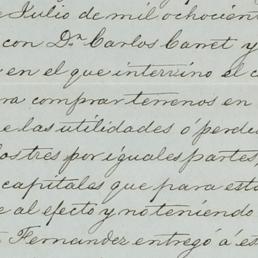 Julio de mil ochocient
con Dn. Carlos Canet y
en el que intervino el c
ra comprar terrenos en
e las utilidades ó perde
los tres por iguales partes,
capitales que para esta
e al efecto y no teniendo
Fernandez entregó á es